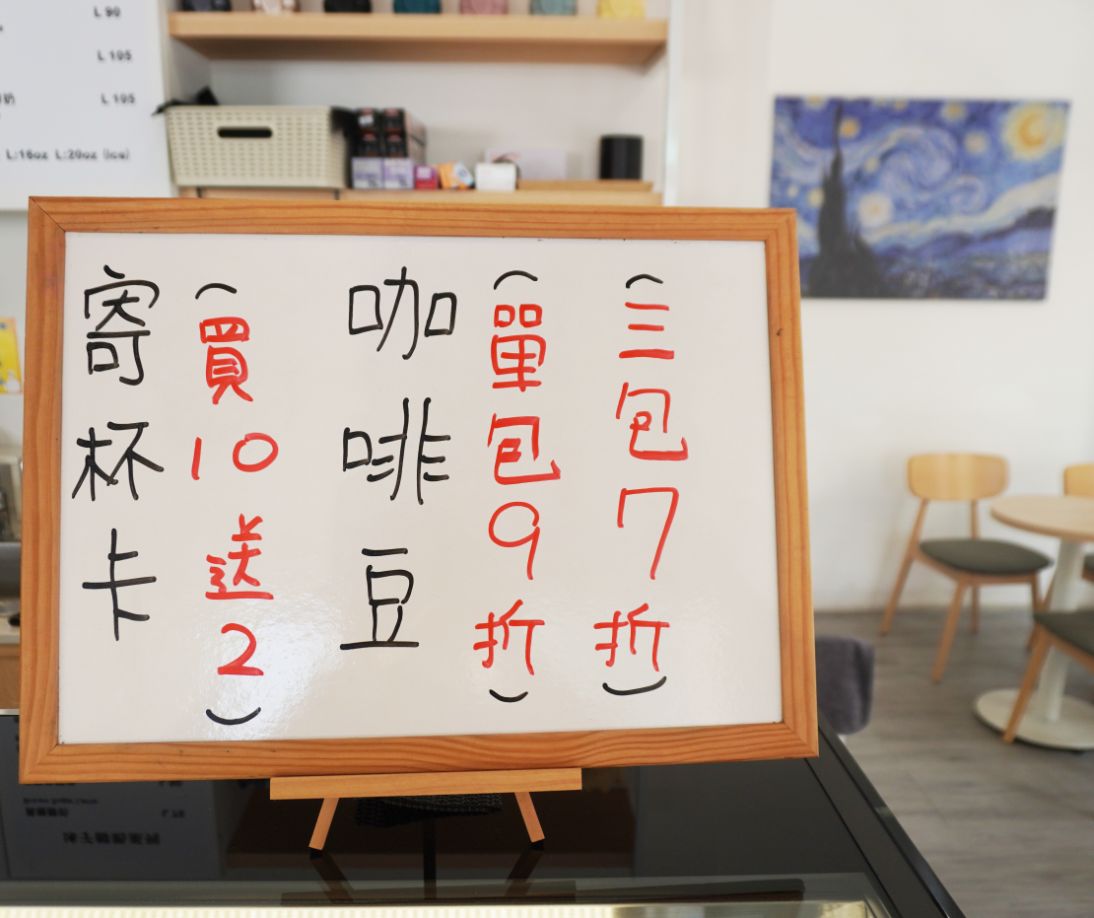 L 90
L 105
L 105
L:16oz L:20oz (ice)
寄杯卡
(買10送2)
咖啡豆
(單包9折)
(三包7折)